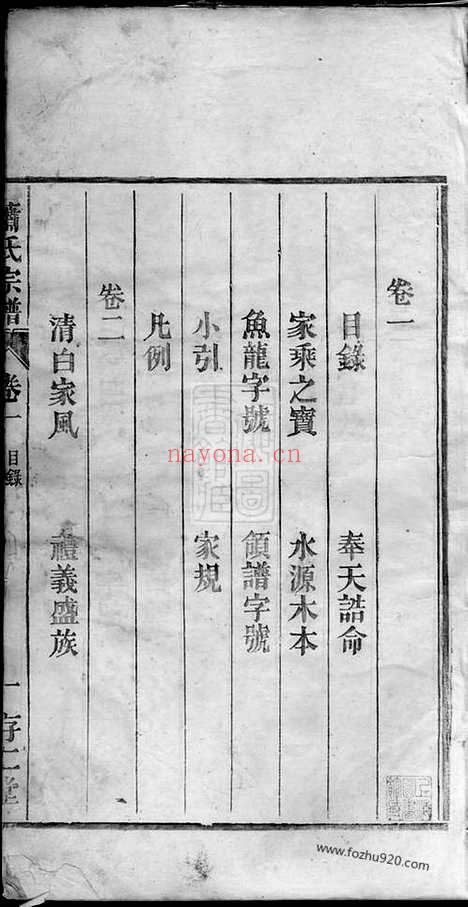 卷一
目錄 奉天誥命
家乘之寶 水源木本
魚龍字號 領譜字號
小引 家規
凡例
卷二
清白家風 禮義盛族
蕭氏宗譜 卷一 目錄 一
nayona.cn
www.fozhu920.com